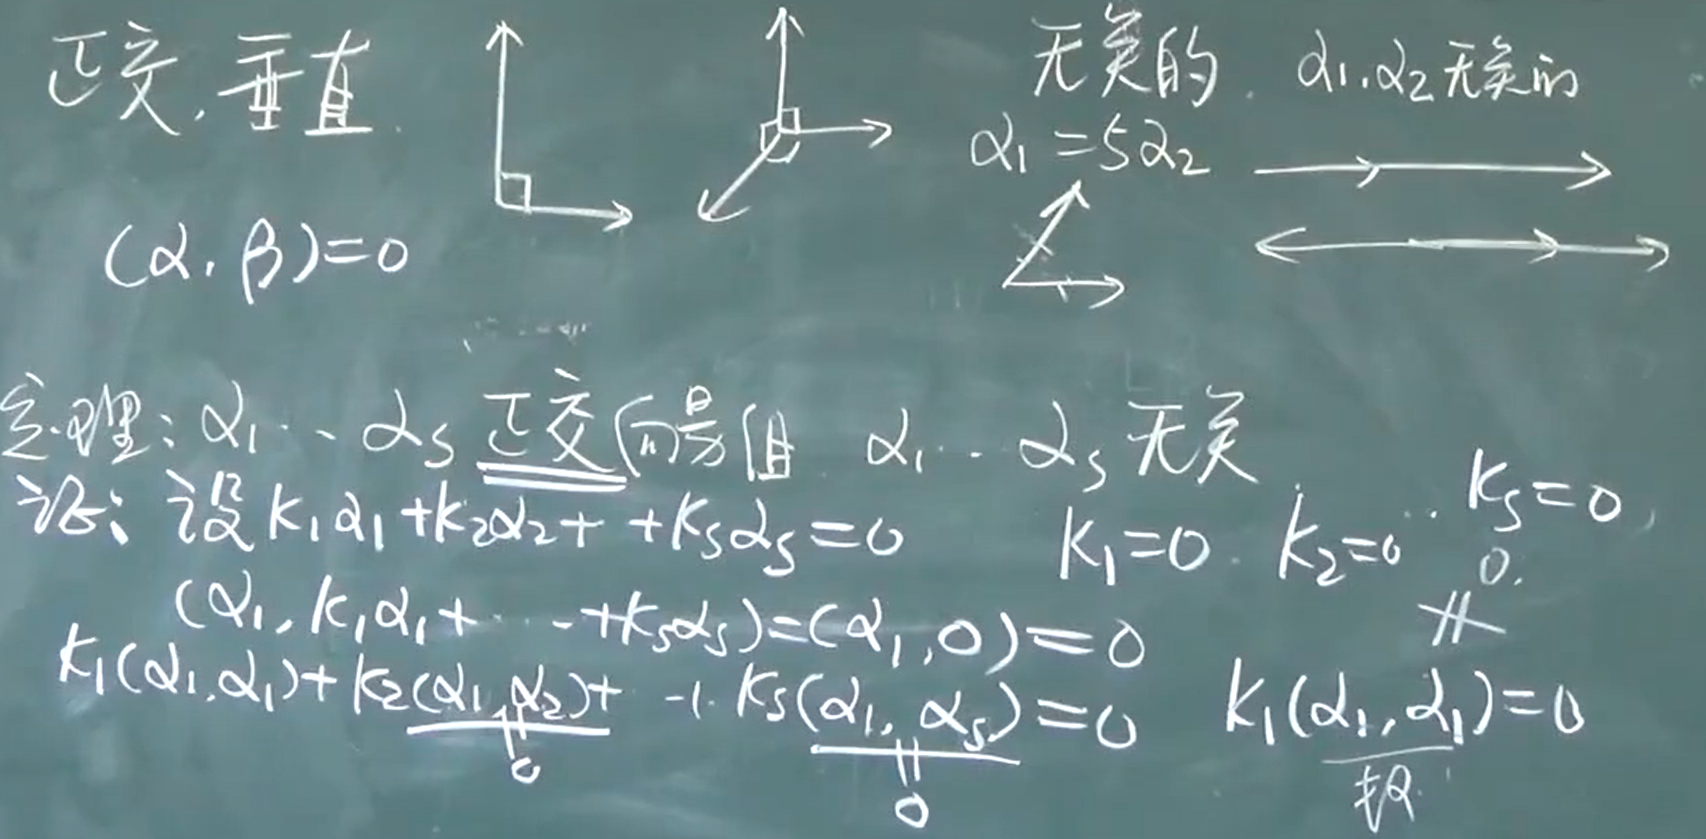 正交,垂直. 无关的. α₁,α₂无关的
α₁=5α₂
(α,β)=0
定理:α₁…αs 正交向量组 α₁…αs 无关
证:设k₁α₁+k₂α₂+ +ksαs=0 k₁=0. k₂=0 … ks=0,
(α₁,k₁α₁+…+ksαs)=(α₁,0)=0
k₁(α₁,α₁)+k₂(α₁,α₂)+ … ks(α₁,αs)=0 k₁(α₁,α₁)=0
0 0